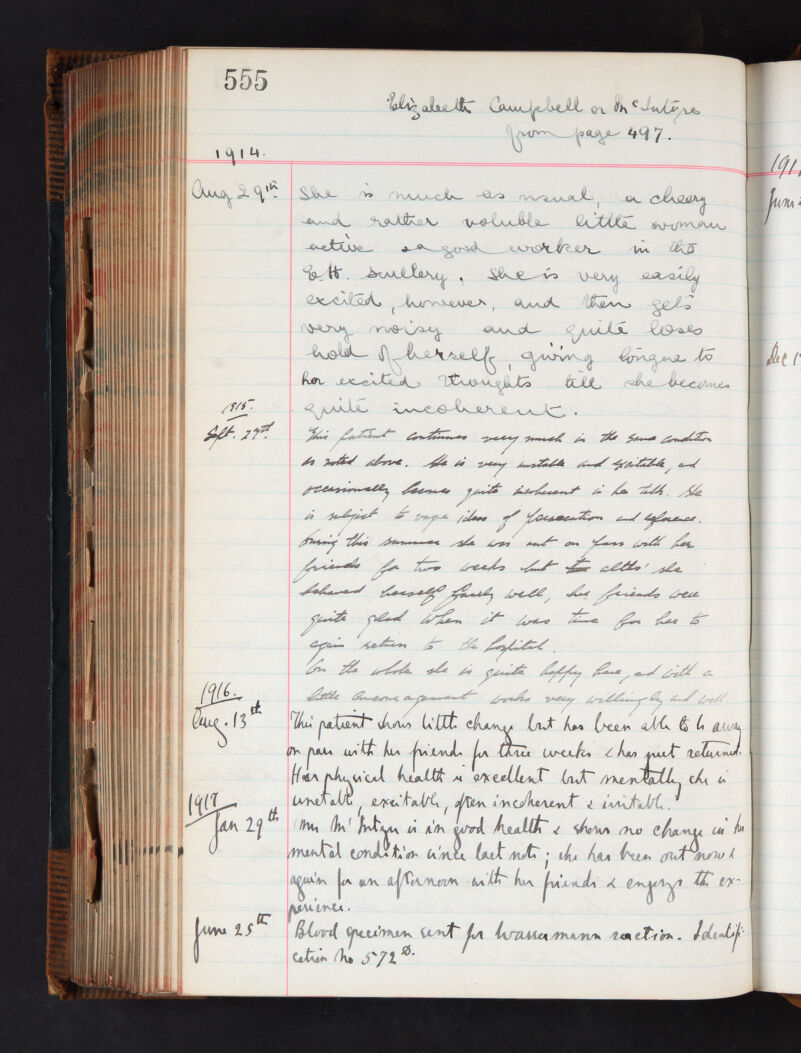 555
Elizabeth Campbell or McIntyre
from page 497.
1914.
Aug 29th. She is much as usual, a cheery
and rather voluble little woman
active & a good worker in the
E.H. scullery. She is very easily
excited, however, and then gets
very noisy and quite loses
hold of herself, giving tongue to
her excited thoughts till she becomes
quite incoherent.
1915.
Sept. 27th. This patient continues very much in the same condition
as noted above. She is very unstable and excitable, and
occasionally becomes quite incoherent in her talk. She
is subject to vague ideas of persecution and reference.
During this summer she was out on pass with her
friends for two weeks but altho' she
behaved herself fairly well, her friends were
quite glad when it was time for her to
again return to the hospital.
On the whole she is quite happy here, and with a
little encouragement works very willingly and well
1916.
Aug. 13th This patient shows little change but has been able to be away
on pass with her friends for three weeks & has just returned.
Her physical health is excellent but mentally she is
unstable, excitable, often incoherent & irritable.
1917
Jan 29th Mrs McIntyre is in good health & shows no change in her
mental condition since last note; she has been out now &
again for an afternoon with her friends & enjoys the ex-
perience.
June 25th Blood specimen sent for Wassermann reaction. Identifi-
cation No 572 D.
191
June
Dec 1